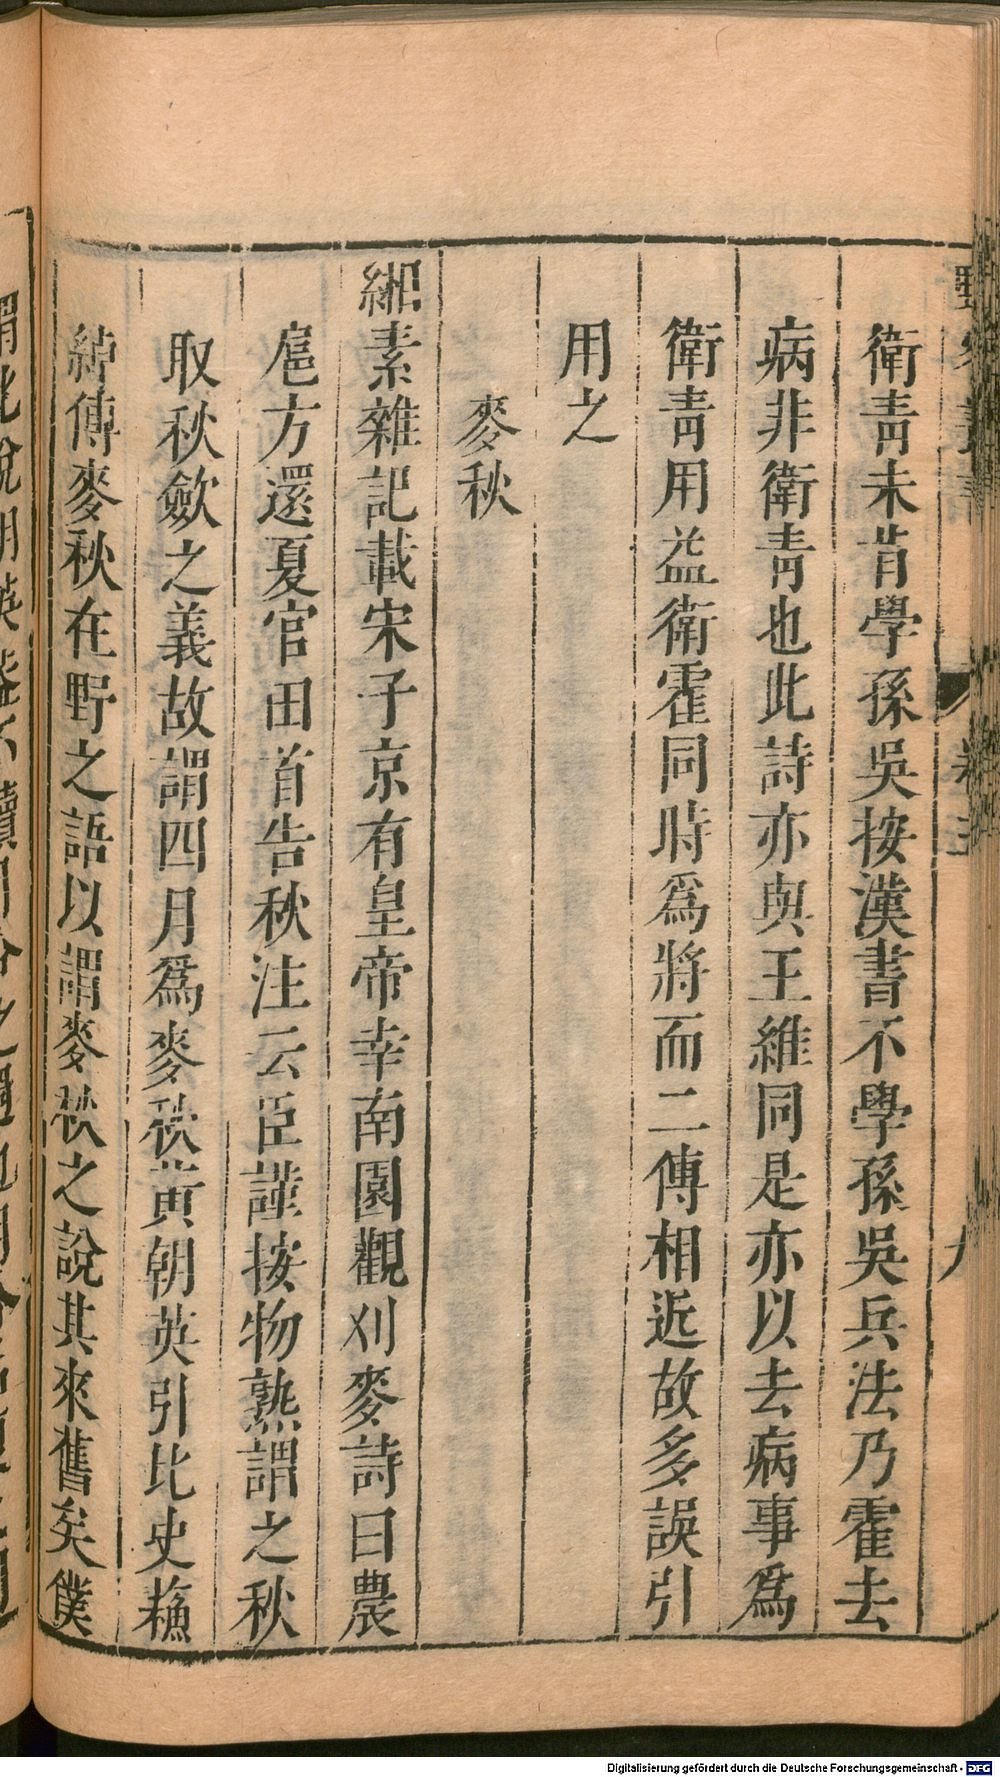 衛青未肯學孫吳按漢書不學孫吳兵法乃霍去
病非衛青也此詩亦與王維同是亦以去病事爲
衛青用益衛霍同時爲將而二傳相近故多誤引
用之
麥秋
緗素雜記載宋子京有皇帝幸南園觀刈麥詩曰農
扈方還夏官田首告秋注云臣謹按物熟謂之秋
取秋斂之義故謂四月爲麥秋黃朝英引北史蘇
綽傳麥秋在野之語以謂麥秋之說其來舊矣僕
卷五
九
Digitalisierung gefördert durch die Deutsche Forschungsgemeinschaft - DFG